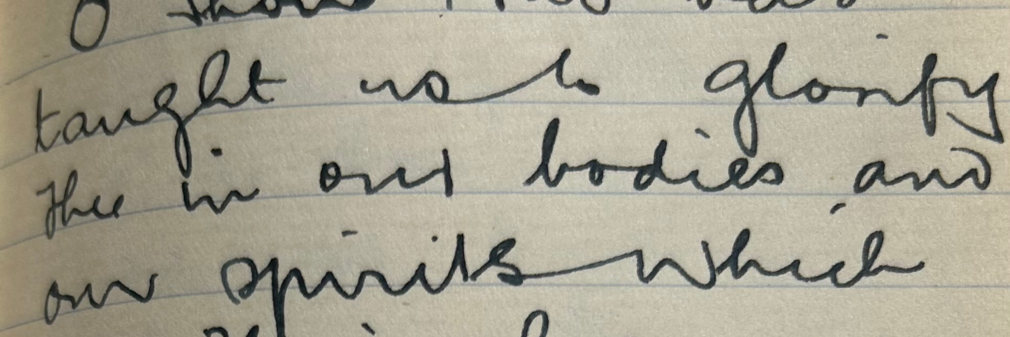 taught us to glorify
Thee in our bodies and
our spirits which